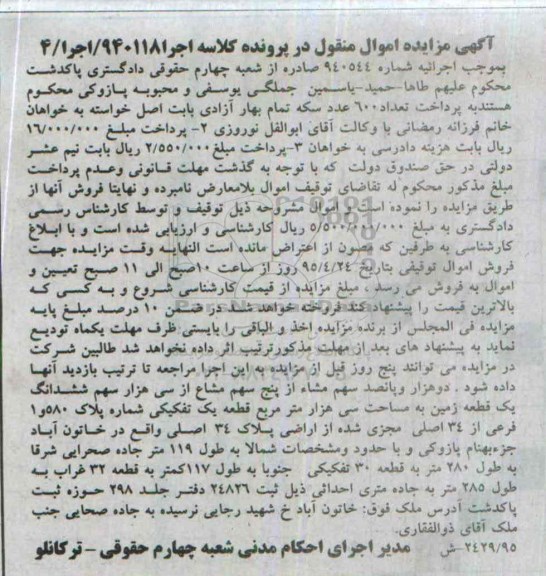 آگهی مزایده اموال منقول در پرونده کلاسه اجرا ۹۴۰۱۱۸/اجرا/۴
بموجب اجرائیه شماره ۹۴۰۵۴۴ صادره از شعبه چهارم حقوقی دادگستری پاکدشت
محکوم علیهم طاها-حمید-یاسمین جملگی یوسفی و محبوبه پازوکی محکوم
هستندبه پرداخت تعداد۶۰۰ عدد سکه تمام بهار آزادی بابت اصل خواسته به خواهان
خانم فرزانه رمضانی با وکالت آقای ابوالفل نوروزی ۲- پرداخت مبلغ ۱۶/۰۰۰/۰۰۰
ریال بابت هزینه دادرسی به خواهان ۳-پرداخت مبلغ ۲/۵۵۰/۰۰۰ ریال بابت نیم عشر
دولتی در حق صندوق دولت که با توجه به گذشت مهلت قانونی وعدم پرداخت
مبلغ مذکور محکوم له تقاضای توقیف اموال بلامعارض نامبرده و نهایتا فروش آنها از
طریق مزایده را نموده است و اموال مشروحه ذیل توقیف و توسط کارشناس رسمی
دادگستری به مبلغ ۵/۵۰۰/۰۰۰/۰۰۰ ریال کارشناسی و ارزیابی شده است و با ابلاغ
کارشناسی به طرفین که مصون از اعتراض مانده است النهایه وقت مزایده جهت
فروش اموال توقیفی بتاریخ ۹۵/۴/۲۴ روز از ساعت ۱۰صبح الی ۱۱ صبح تعیین و
اموال به فروش می رسد ، مبلغ مزایده از قیمت کارشناسی شروع و به کسی که
بالاترین قیمت را پیشنهاد کند فروخته خواهد شد در ضمن ۱۰ درصد مبلغ پایه
مزایده فی المجلس از برنده مزایده اخذ و الباقی را بایستی ظرف مهلت یکماه تودیع
نماید به پیشنهاد های بعد از مهلت مذکورترتیب اثر داده نخواهد شد طالبین شرکت
در مزایده می توانند پنج روز قبل از مزایده به این اجرا مراجعه تا ترتیب بازدید آنها
داده شود . دوهزار وپانصد سهم مشاء از پنج سهم مشاع از سی هزار سهم ششدانگ
یک قطعه زمین به مساحت سی هزار متر مربع قطعه یک تفکیکی شماره پلاک ۵۸۰و۱
فرعی از ۳۴ اصلی مجزی شده از اراضی پلاک ۳۴ اصلی واقع در خاتون آباد
جزءبهنام پازوکی و با حدود ومشخصات شمالا به طول ۱۱۹ متر جاده صحرایی شرقا
به طول ۲۸۰ متر به قطعه ۳۰ تفکیکی جنوبا به طول ۱۱۷کمتر به قطعه ۳۲ غراب به
طول ۲۸۵ متر به جاده متری احداثی ذیل ثبت ۲۴۸۲۶ دفتر جلد ۲۹۸ حوزه ثبت
پاکدشت آدرس ملک فوق: خاتون آباد خ شهید رجایی نرسیده به جاده صحایی جنب
ملک آقای ذوالفقاری.
۲۴۲۹/۹۵-ش مدیر اجرای احکام مدنی شعبه چهارم حقوقی – ترکانلو